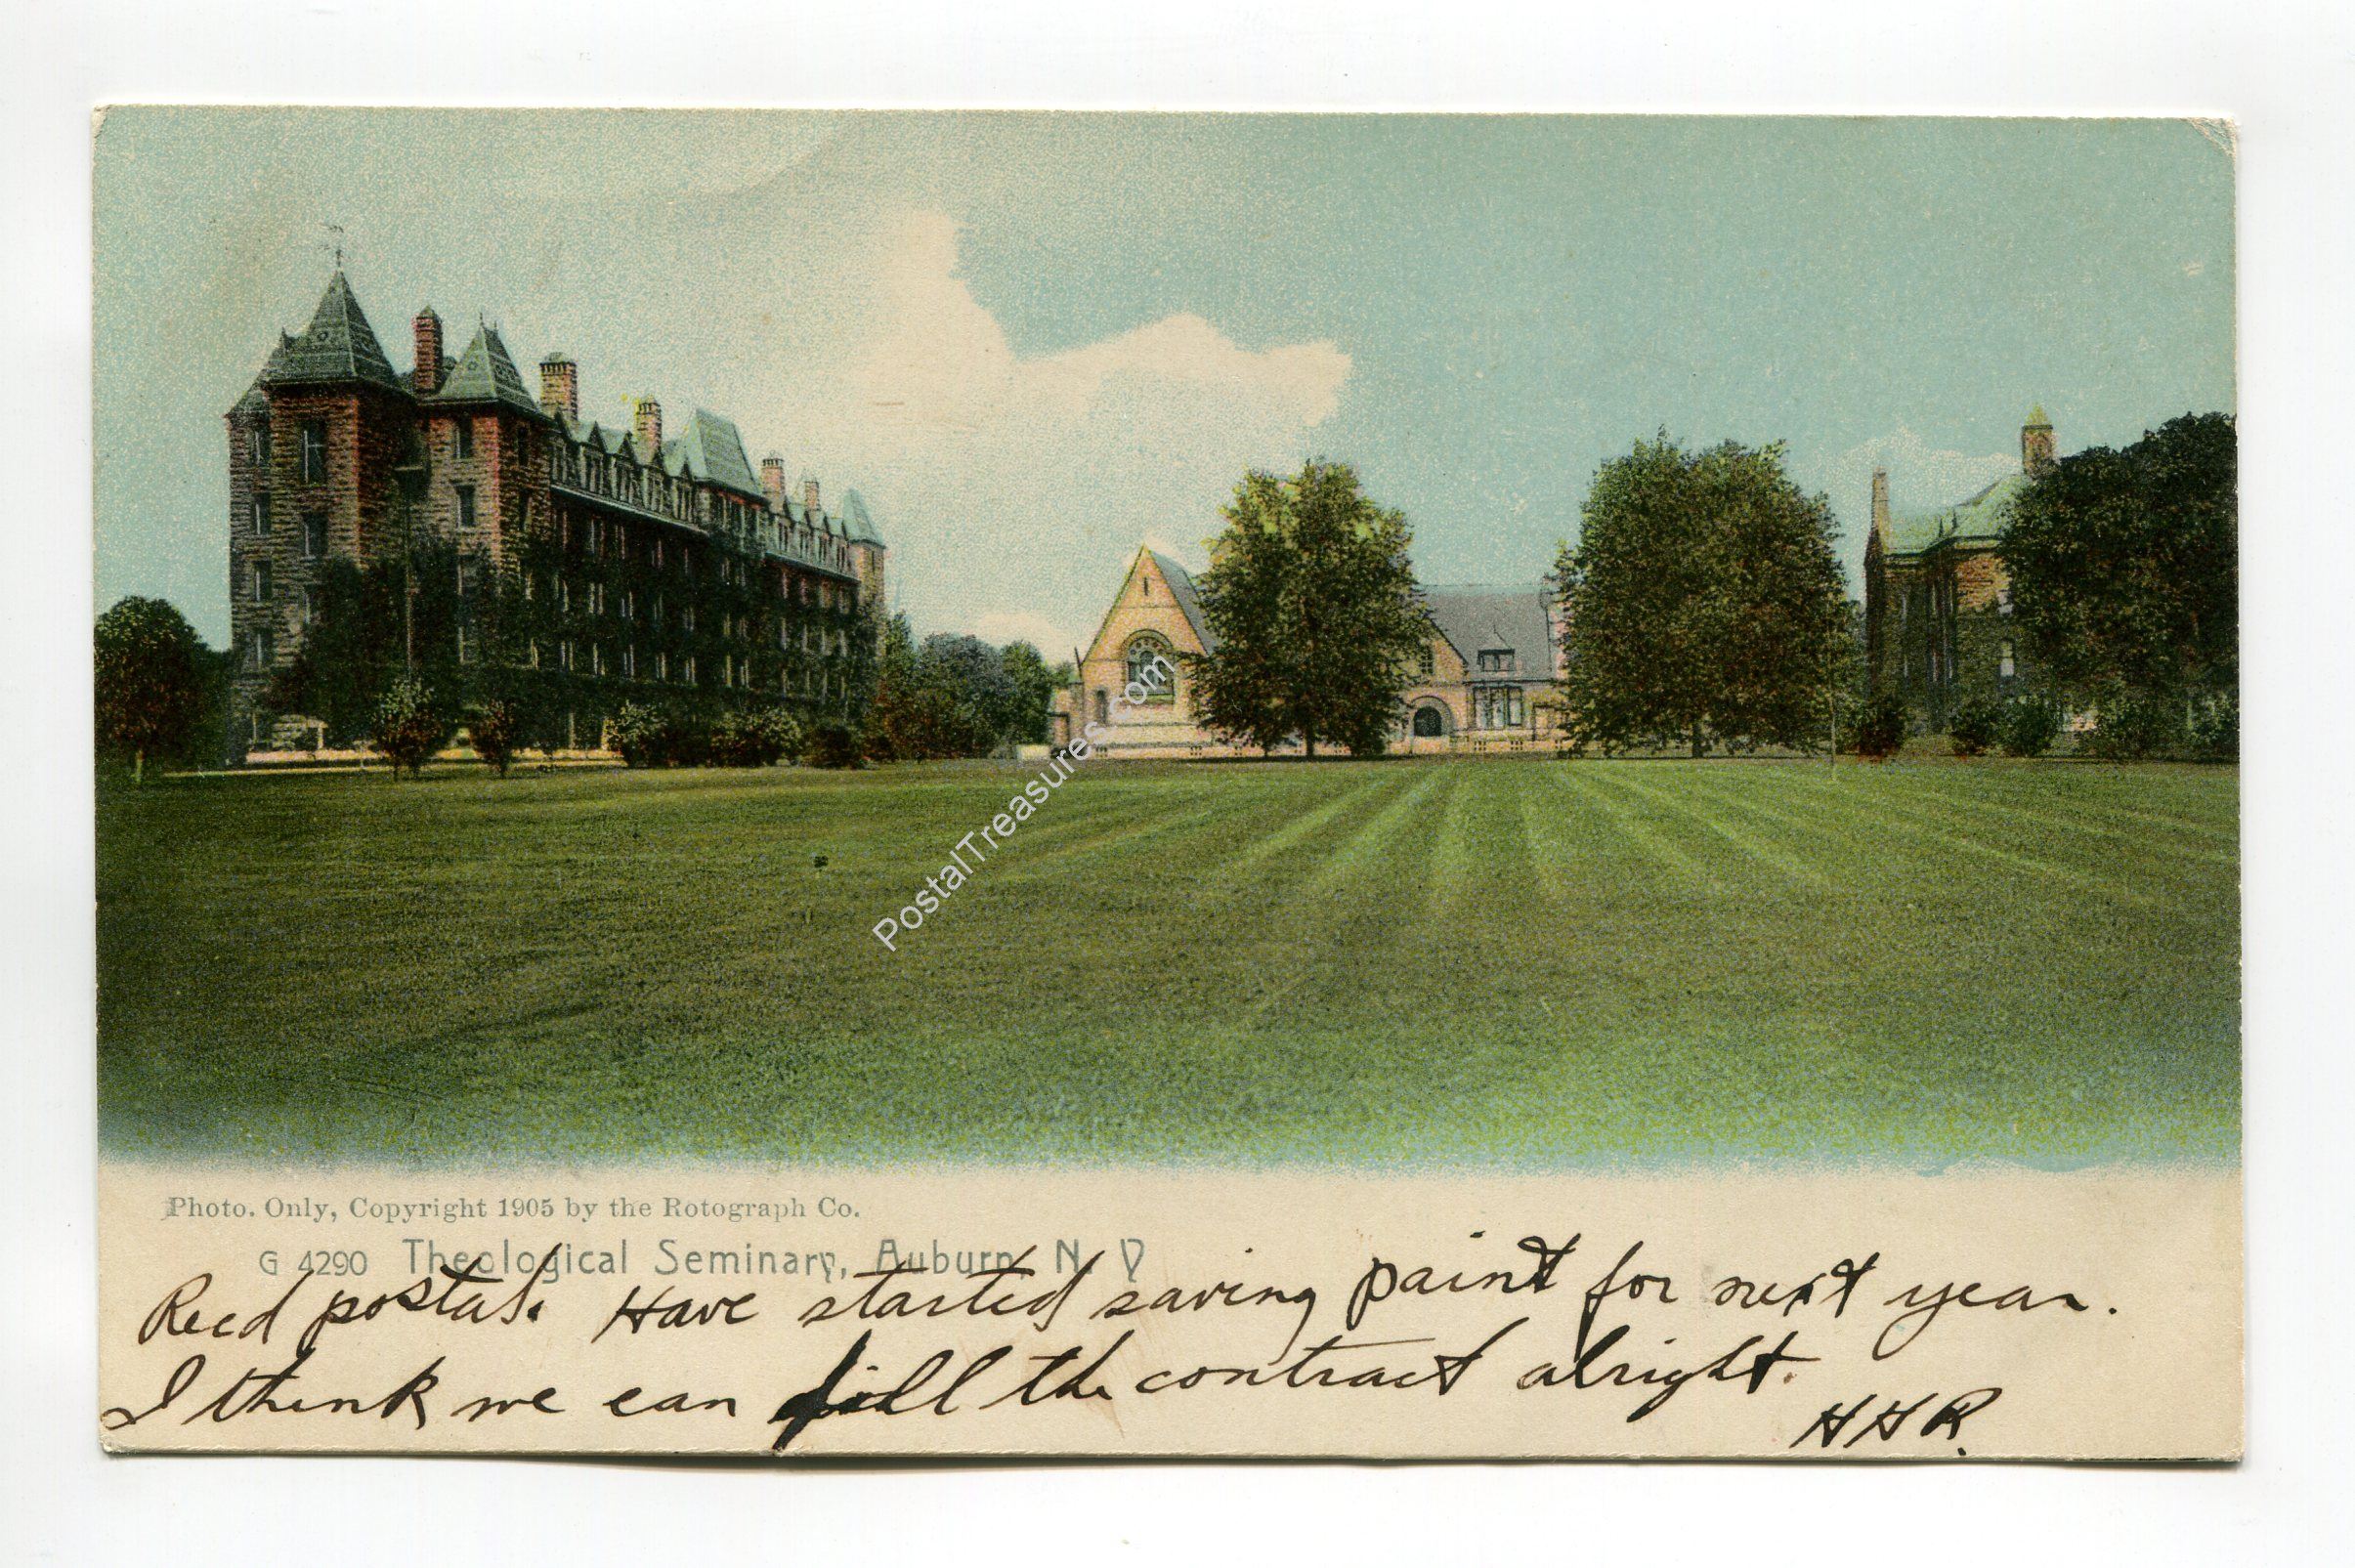 PostalTreasures.com
Photo. Only, Copyright 1905 by the Rotograph Co.
G 4290 Theological Seminary, Auburn N Y
Recd postal. Have started saving paint for next year.
I think we can fill the contract alright.
H H R.